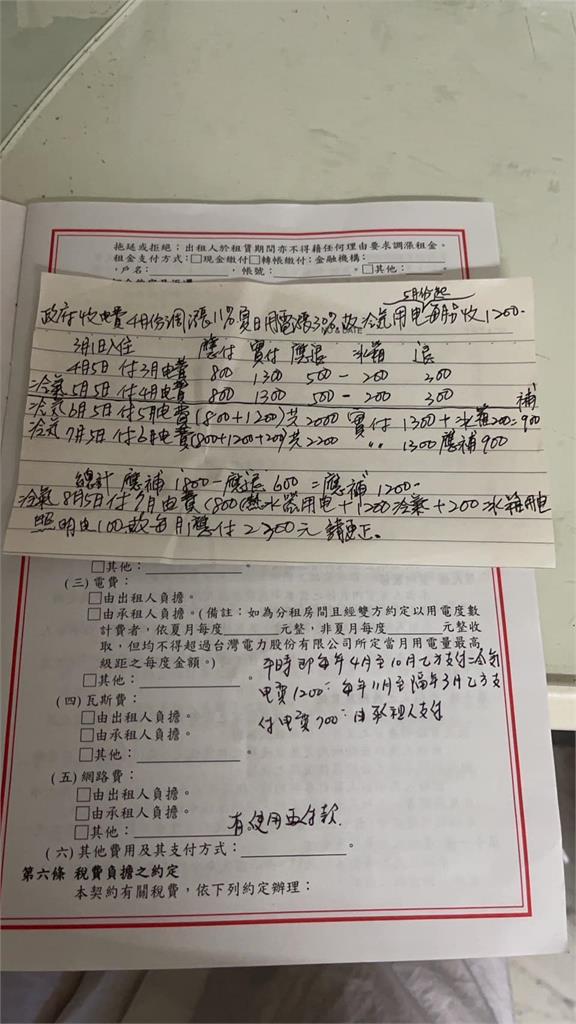 拖延或拒絕；出租人於租賃期間亦不得藉任何理由要求調漲租金。
租金支付方式：□現金繳付□轉帳繳付：金融機構：
，戶名：，帳號：。□其他：。
5月份起
政府收電費4月份調漲11%夏日用電漲30%故冷氣用电每月收1200-
3月1日入住 應付 實付 應退 冰箱 退
4月5日付3月电費 800 1300 500 - 200 300
冷氣5月5日付4月电費 800 1300 500 - 200 300
冷氣6月5日付5月电費(800+1200)共2000 實付1300+冰箱200=900 補
冷氣7月5日付6月电費(800+1200+200)共2200 〃 1300應補900
總計 應補1800-應退600=應補1200-
冷氣8月5日付7月电費(800(熱水器用电+1200冷氣+200冰箱用电
照明电100故每月應付2300元 請更正。
□其他：。
(三)電費：
□由出租人負擔。
□由承租人負擔。(備註：如為分租房間且經雙方約定以用電度數
計費者，依夏月每度元整，非夏月每度元整收
取，但均不得超過台灣電力股份有限公司所定當月用電量最高
級距之每度金額。)
平時即每年4月至10月乙方支付冷氣
□其他：。
电費1200- 每年11月至隔年3月乙方支
(四)瓦斯費：
付电費700- 由承租人支付
□由出租人負擔。
□由承租人負擔。
□其他：
(五)網路費：
□由出租人負擔。
□由承租人負擔。
□其他：有使用再付款。
(六)其他費用及其支付方式：。
第六條 稅費負擔之約定
本契約有關稅費，依下列約定辦理：